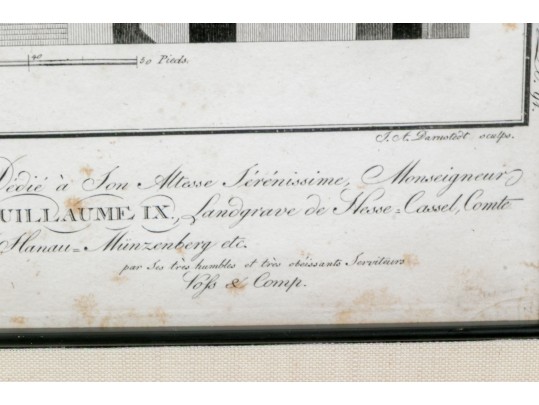 40 50 Pieds.
J. A. Darnstedt sculps.
Dédié à Son Altesse Sérénissime, Monseigneur
GUILLAUME IX., Landgrave de Hesse=Cassel, Comte
Hanau=Münzenberg etc.
par Ses très humbles et très obéissants Serviteurs
Voſs & Comp.